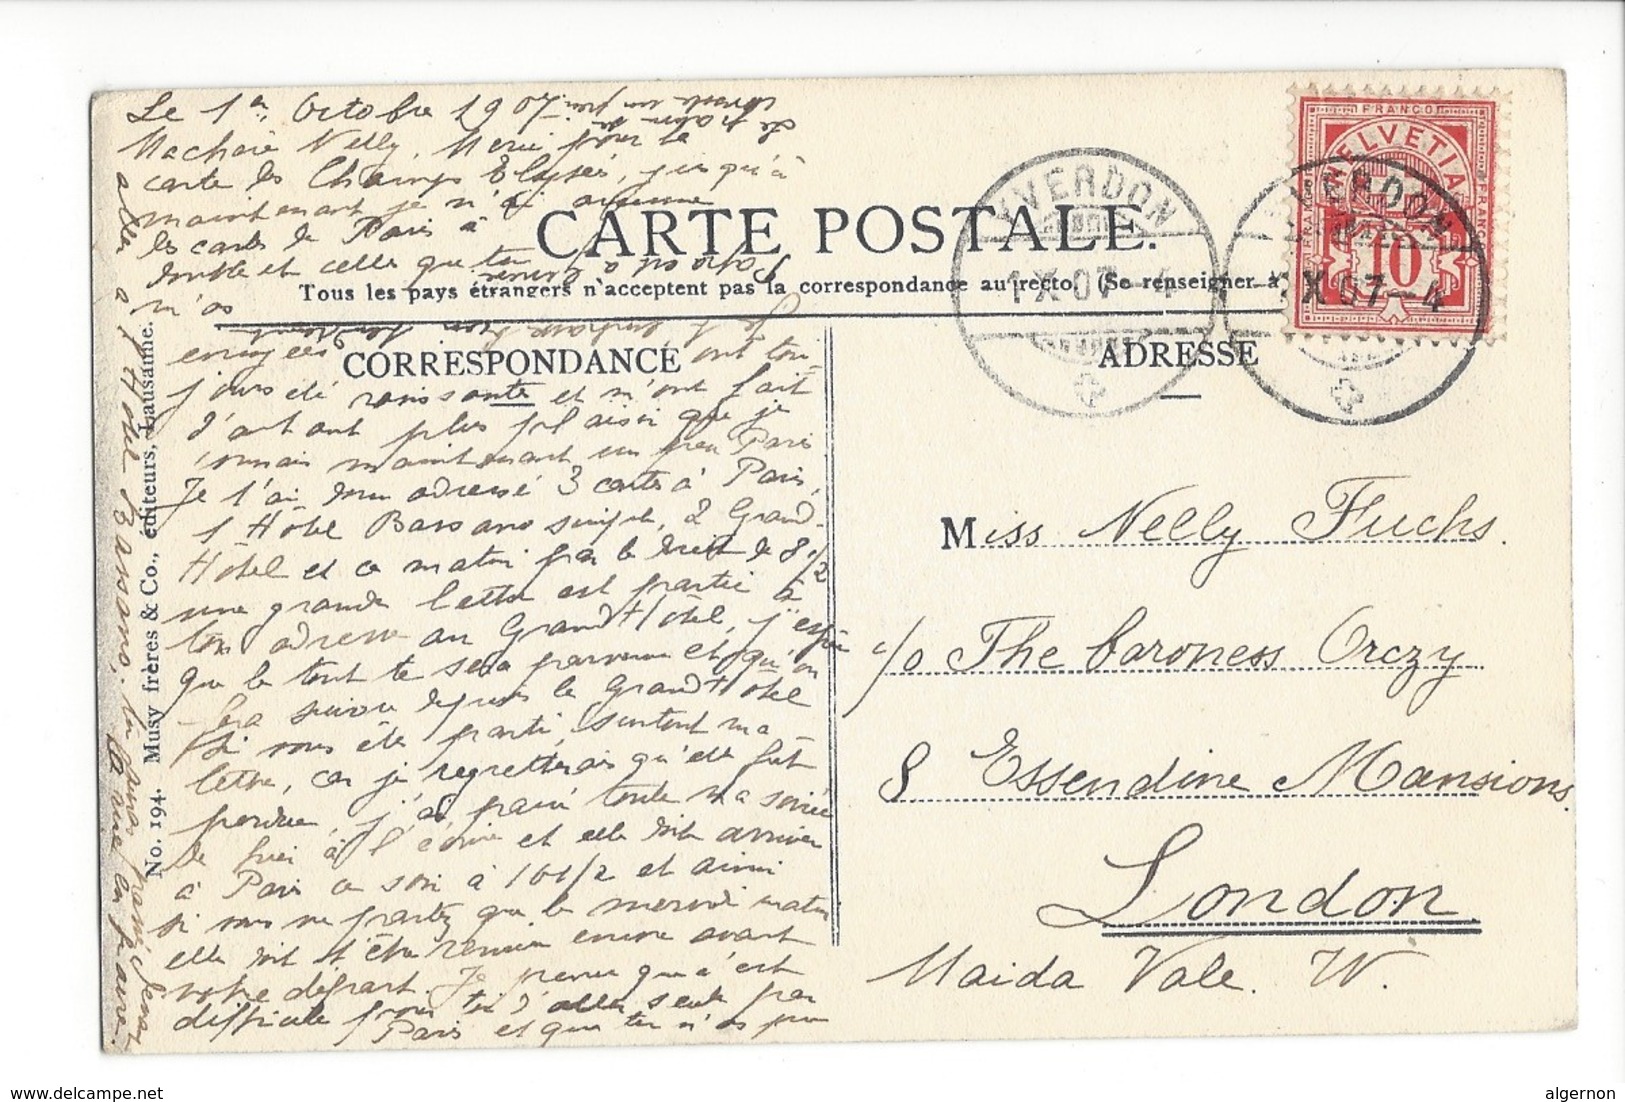 Le 1er Octobre 1907
Ma chère Nelly, Merci pour ta
carte des Champs Elysées, jusqu'à
maintenant je n'ai aucune
CARTE POSTALE.
les cartes de Paris à
double et celles que tu
Tous les pays étrangers n'acceptent pas la correspondance au recto. (Se renseigner à
n'as
envoyées ont tou
CORRESPONDANCE
jours été ravissante et m'ont fait
d'autant plus plaisir que je
connais maintenant un peu Paris
Je t'ai donc adressé 3 cartes à Paris,
1 Hôtel Bassano simple, 2 Grand-
Hôtel et ce matin par le train de 8.1/2
une grande lettre est partie à
ton adresse au Grand Hôtel, j'espère
que le tout te sera parvenu et qu'on
fera suivre depuis le Grand Hôtel
si vous êtes parti, surtout ma
lettre, car je regretterais qu'elle fût
perdue, j'ai passé toute ma soirée
de hier à l'écrire et elle doit arriver
à Paris ce soir à 10 1/2 et ainsi
si vous ne partez que le mercredi matin
elle doit t'être remise encore avant
votre départ. Je pense que c'est
difficile pour toi d'aller seule par
Paris et que tu n'as pu
aller à l'Hôtel Bassano.
No. 194. Musy frères & Co., éditeurs, Lausanne.
ADRESSE
Miss Nelly Fuchs.
c/o The baroness Orczy
8 Essendine Mansions.
London
Maida Vale. W.
FRANCO
HELVETIA
FRANCO
FRANCO
10
YVERDON
1 X 07 – 4
YVERDON
1 X 07 – 4
www.delcampe.net
algernon